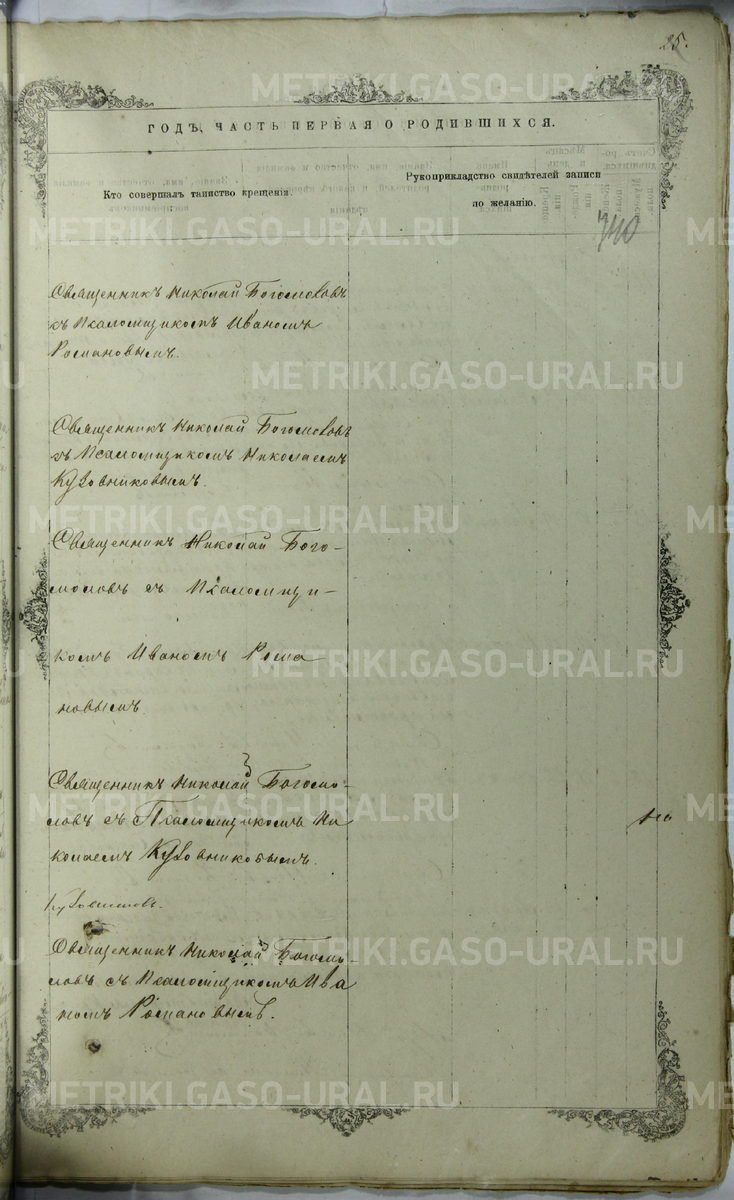 25.
ГОДЪ, ЧАСТЬ ПЕРВАЯ О РОДИВШИХСЯ.
Кто совершалъ таинство крещенія.
Рукоприкладство свидѣтелей записи
по желанію.
340
Священникъ Николай Богомоловъ
съ Псаломщикомъ Иваномъ
Романовымъ.
Священникъ Николай Богомоловъ
съ Псаломщикомъ Николаемъ
Кузовниковымъ.
Священникъ Николай Бого-
моловъ съ Псаломщи-
комъ Иваномъ Рома
новымъ
Священникъ Николай Богомо-
ловъ съ Псаломщикомъ Ни
колаемъ Кузовниковымъ.
Священникъ Николай Богомо-
ловъ съ Псаломщикомъ Ива
номъ Романовымъ.
METRIKI.GASO-URAL.RU